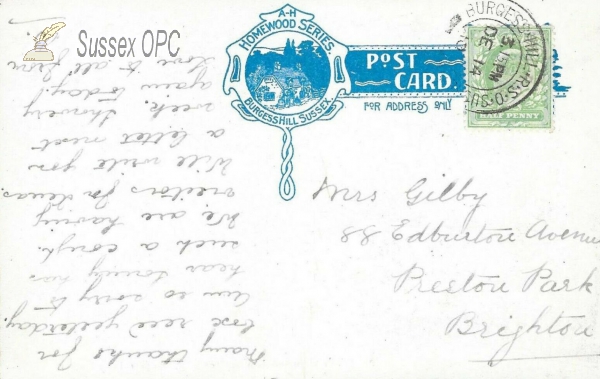 Sussex OPC
A-H
HOMEWOOD SERIES
BURGESS HILL SUSSEX
POST
CARD.
FOR ADDRESS ONLY
BURGESS-HILL-R.S.O-SU
DE 14
HALF PENNY
Mrs Gilby
88 Edburton Avenue
Preston Park
Brighton
Many thanks for
box recd yesterday.
am so sorry to
hear has
such a cough.
We are having
visitors for
Will write you
a letter next
week. Showery
again today.
Love to all from
J